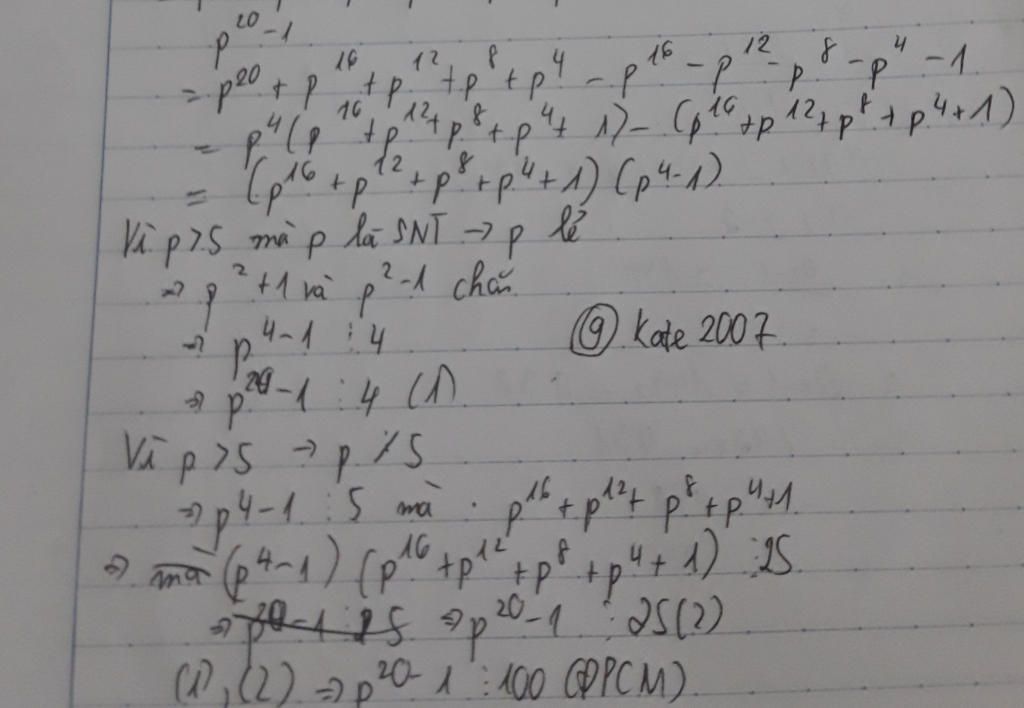 p²⁰-1
= p²⁰ + p¹⁶ + p¹² + p⁸ + p⁴ - p¹⁶ - p¹² - p⁸ - p⁴ - 1
= p⁴(p¹⁶ + p¹² + p⁸ + p⁴ + 1) - (p¹⁶ + p¹² + p⁸ + p⁴ + 1)
= (p¹⁶ + p¹² + p⁸ + p⁴ + 1)(p⁴-1)
Vì p>5 mà p là SNT → p lẻ
⇒ p² + 1 và p² - 1 chẵn
⇒ p⁴-1 ⋮ 4
@ Kate 2007
⇒ p²⁰-1 ⋮ 4 (1)
Vì p>5 → p ⋮̸ 5
⇒ p⁴-1 ⋮ 5 mà p¹⁶ + p¹² + p⁸ + p⁴ + 1
⇒ mà (p⁴-1)(p¹⁶ + p¹² + p⁸ + p⁴ + 1) ⋮ 25
⇒ p²⁰-1 ⋮ 25 ⇒ p²⁰-1 ⋮ 25(2)
(1), (2) ⇒ p²⁰-1 ⋮ 100 (ĐPCM)